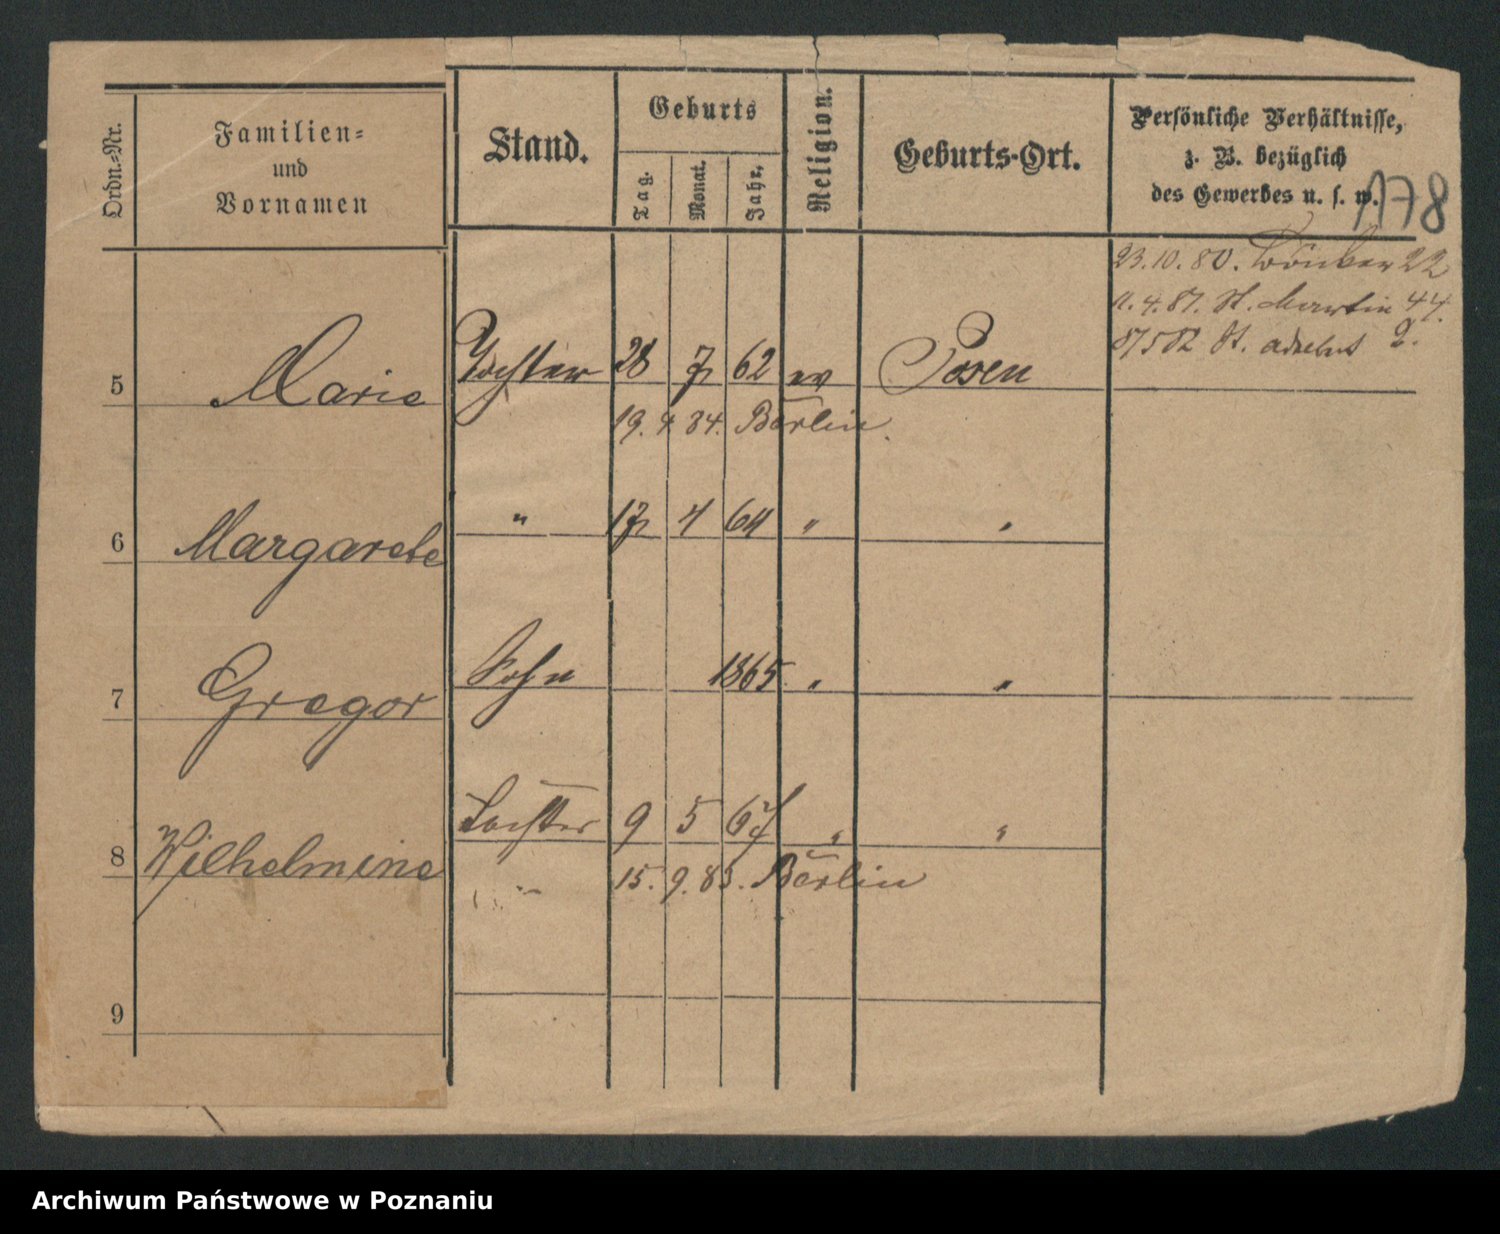 Ordn.-Nr.
Familien-
und
Vornamen
Stand.
Geburts
Tag.
Monat.
Jahr.
Religion.
Geburts-Ort.
Persönliche Verhältnisse,
z. B. bezüglich
des Gewerbes u. s. w.
178
23.10.80. 22
11.4.81. St. Martin 44.
St. Adalbert 2.
5 Marie Tochter 28 7 62 ev Posen
19. 4. 84. Berlin.
6 Margarete " 17 4 64 " "
7 Gregor Sohn 1865 " "
8 Wilhelmine Tochter 9 5 67 " "
" 15. 9. 83. Berlin
9
Archiwum Państwowe w Poznaniu